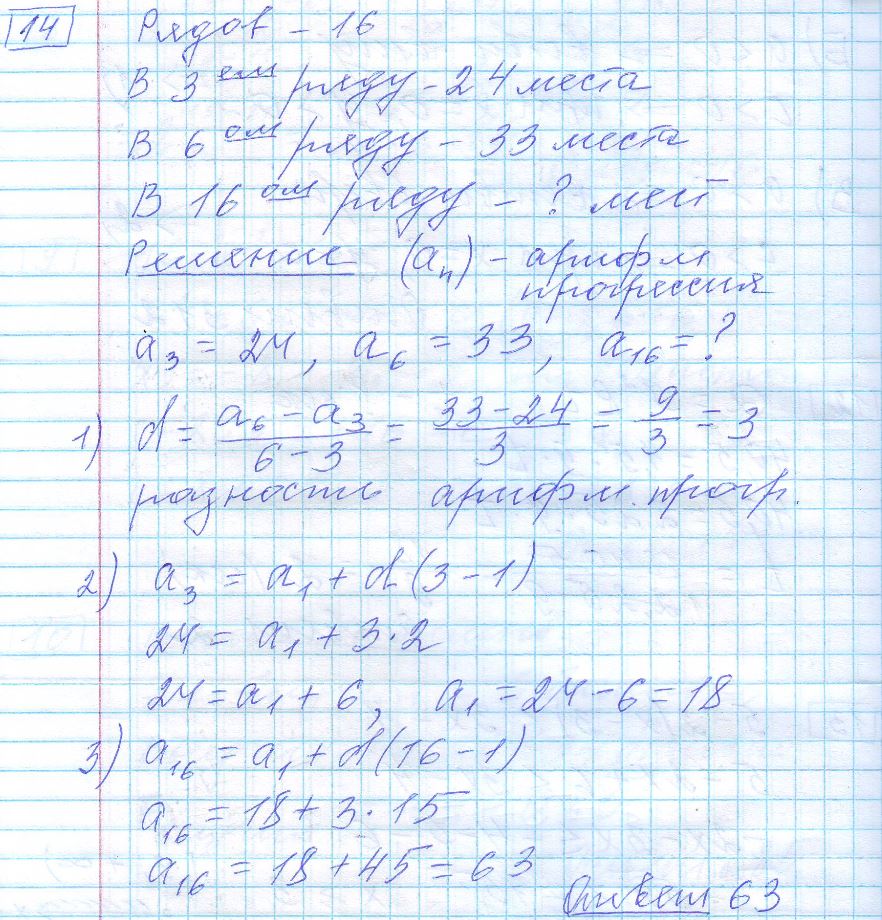 14 Рядов - 16
В 3ем ряду - 24 места
В 6ом ряду - 33 места
В 16ом ряду - ? мест
Решение (aₙ) - арифм
прогрессия
a₃ = 24, a₆ = 33, a₁₆ = ?
1) d = (a₆ - a₃)/(6 - 3) = (33 - 24)/3 = 9/3 = 3
разность арифм. прогр.
2) a₃ = a₁ + d(3 - 1)
24 = a₁ + 3·2
24 = a₁ + 6, a₁ = 24 - 6 = 18
3) a₁₆ = a₁ + d(16 - 1)
a₁₆ = 18 + 3·15
a₁₆ = 18 + 45 = 63
Ответ 63